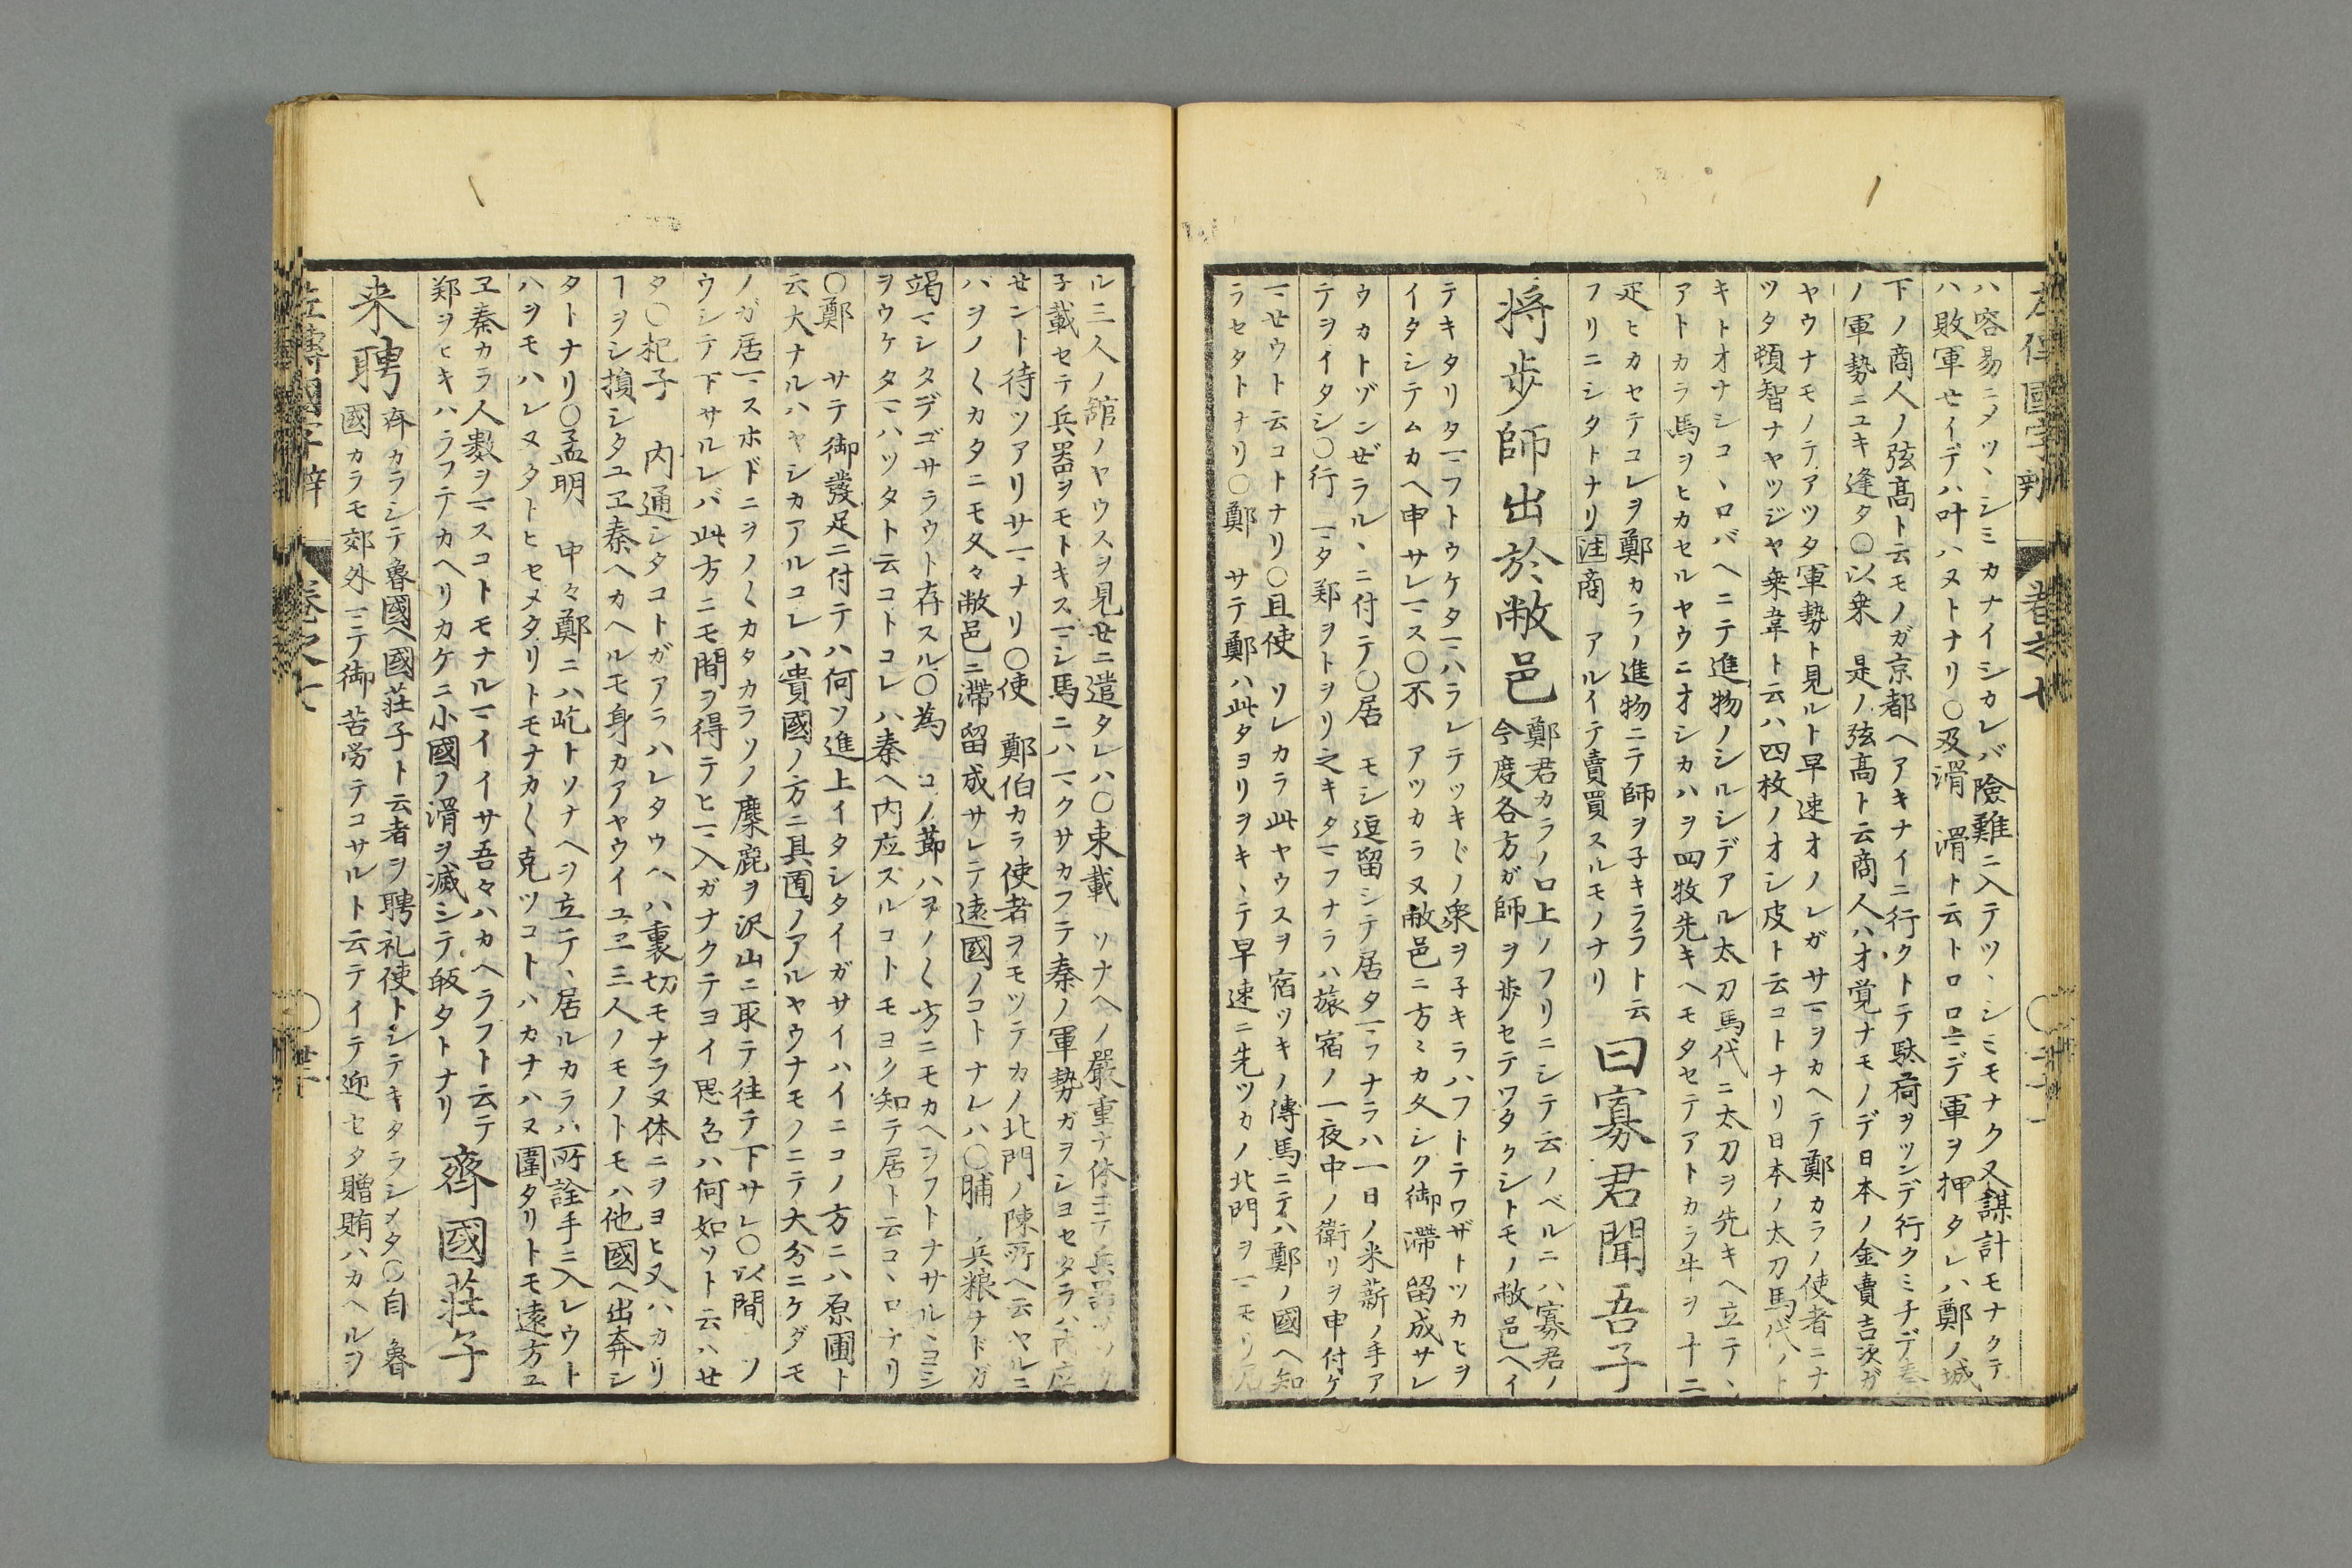 左傳國字辨 巻之七
ハ容易ニメツヽシミカナイシカレバ險難ニ入テツヽシミモナク又謀計モナクテ
ハ敗軍セイデハ叶ハヌトナリ〇及滑 滑ト云トコロ
下ノ商人ノ弦髙ト云モノガ京都ヘアキナイニ行クトテ駄荷ヲツンデ行クミチデ秦
ノ軍勢ニユキ逢タ〇以乗 是ノ弦髙ト云商人ハオ覚ナモノデ日本ノ金賣吉次ガ
ヤウナモノテアツタ軍勢ト見ルト早速オノレガサヲカヘテ鄭カラノ使者ニナ
ツタ頓智ナヤツジヤ乗韋ト云ハ四枚ノオシ皮ト云コトナリ日本ノ太刀馬代ノト
キトオナシコヽロバヘニテ進物ノシルシデアル太刀馬代ニ太刀ヲ先キヘ立テヽ
アトカラ馬ヲヒカセルヤウニオシカハヲ四牧先キヘモタセテアトカラ牛ヲ十二
疋ヒカセテコレヲ鄭カラノ進物ニテ師ヲ子キラフト云
フリニシタトナリ注商 アルイテ賣買スルモノナリ
曰寡君聞吾子
将歩師出於敝邑
鄭君カラノ口上ノフリニシテ云ノベルニハ寡君ノ
今度各方ガ師ヲ歩セテワタクシトモノ敝邑ヘイ
テキタリタフトウケタハラレテツキ〴〵ノ衆ヲ子キラハフトテワザトツカヒヲ
イタシテムカヘ申サレス〇不 アツカラヌ敝邑ニ方々カ久シク御滞留成サレ
ウカトゾンゼラルヽニ付テ〇居 モシ逗留シテ居タフナラハ一日ノ米薪ノ手ア
テヲイタシ〇行 タ鄭ヲトヲリ之キタフナラハ旅宿ノ一夜中ノ衛リヲ申付ケ
セウト云コトナリ〇且使 ソレカラ此ヤウスヲ宿ツキノ傳馬ニテハ鄭ノ國ヘ知
ラセタトナリ〇鄭 サテ鄭ハ此タヨリヲキヽテ早速ニ先ツカノ北門ヲ
ル三人ノ舘ノヤウスヲ見セニ遣タレハ〇束載 ソナヘノ嚴重ナ体ニテ
子載セテ兵器ヲモトキスシ馬ニハクサカフテ秦ノ軍勢ガヲシヨセタラハ
セント待ツアリサナリ〇使 鄭伯カラ使者ヲモツテカノ北門ノ陳所ヘ云ヤルニ
ハヲノ〳〵カタニモ久々敝邑ニ滞留成サレテ遠國ノコトナレハ〇脯 兵粮ナドガ
竭シタデゴサラウト存スル〇為 コノ莭ハヲノ〳〵方ニモカヘラフトナサルヽヨシ
ヲウケタハツタト云コトコレハ秦ヘ内应ズルコトモヨク知テ居ト云コヽロナリ
〇鄭 サテ御發足ニ付テハ何ソ進上イタシタイガサイハイニコノ方ニハ原圃ト
云大ナルハヤシカアルコレハ貴國ノ方ニ具囿ノアルヤウナモノニテ大分ニケダモ
ノガ居スホドニヲノ〳〵カタカラソノ麋鹿ヲ沢山ニ取テ往テ下サレ〇以間 ソ
ウシテ下サルレバ此方ニモ間ヲ得テヒ入ガナクテヨイ思召ハ何如ソト云ハセ
タ〇杞子 内通シタコトガアラハレタウヘハ裏切モナラヌ体ニヲヨヒ又ハカリ
ヿヲシ損シタユヱ秦ヘカヘルモ身カアヤウイユヱ三人ノモノトモハ他國ヘ出奔シ
タトナリ〇孟明 中々鄭ニハ屹トソナヘヲ立テヽ居ルカラハ所詮手ニ入レウト
ハヲモハレヌタトヒセメタリトモナカ〳〵克ツコトハカナハヌ圍タリトモ遠方ユ
ヱ秦カラ人数ヲスコトモナルイイサ吾々ハカヘラフト云テ
鄭ヲヒキハラフテカヘリカケニ小國ノ滑ヲ滅シテ皈タトナリ
齊國荘子
来聘
齊カラシテ魯國ヘ國荘子ト云者ヲ聘礼使トシテキタラシメタ〇自 魯
國カラモ郊外ニテ御苦労テコサルト云テイテ迎セタ贈賄ハカヘルヲ
左傳國字辨 巻之七